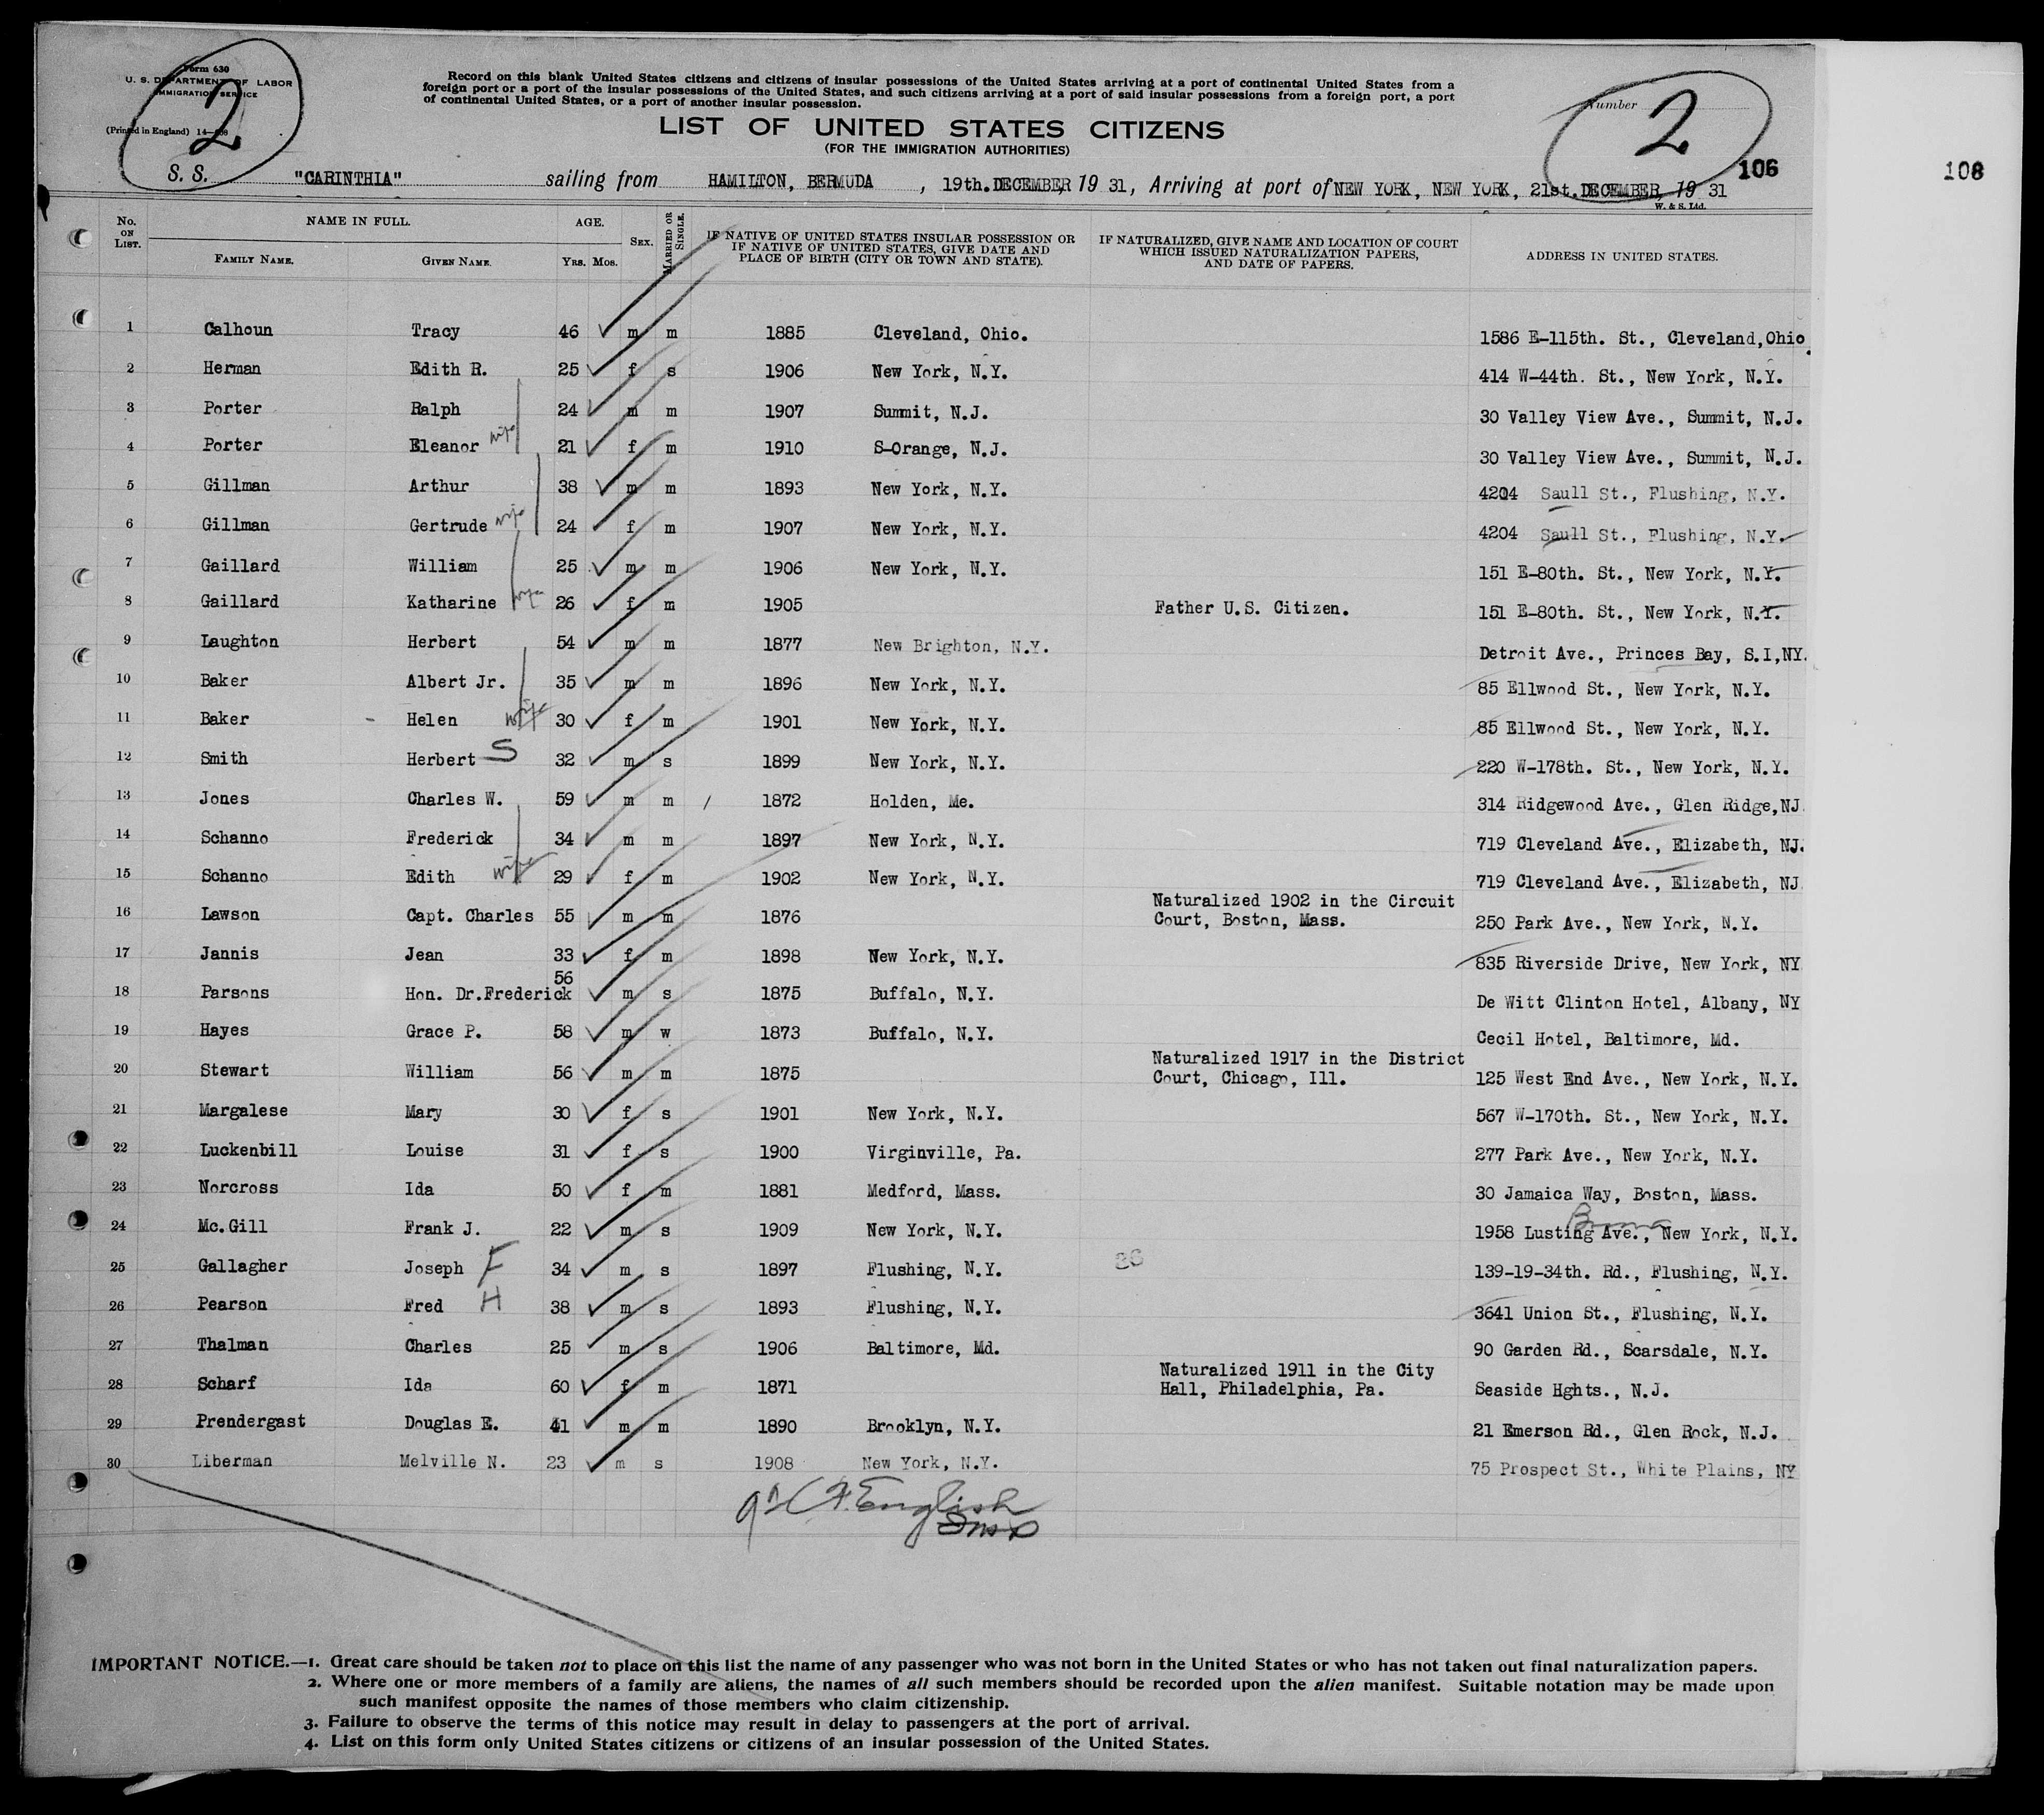 Form 630
U. S. DEPARTMENT OF LABOR
IMMIGRATION SERVICE
(Printed in England) 14—
2
Record on this blank United States citizens and citizens of insular possessions of the United States arriving at a port of continental United States from a
foreign port or a port of the insular possessions of the United States, and such citizens arriving at a port of said insular possessions from a foreign port, a port
of continental United States, or a port of another insular possession.
Number
2
LIST OF UNITED STATES CITIZENS
(FOR THE IMMIGRATION AUTHORITIES)
106
108
S. S. "CARINTHIA" sailing from HAMILTON, BERMUDA, 19th. DECEMBER, 19 31, Arriving at port of NEW YORK, NEW YORK, 21st. DECEMBER, 19 31
W. & S. Ltd.
No. ON LIST. NAME IN FULL. FAMILY NAME. GIVEN NAME. AGE. YRS. MOS. SEX. MARRIED OR SINGLE. IF NATIVE OF UNITED STATES INSULAR POSSESSION OR IF NATIVE OF UNITED STATES, GIVE DATE AND PLACE OF BIRTH (CITY OR TOWN AND STATE). IF NATURALIZED, GIVE NAME AND LOCATION OF COURT WHICH ISSUED NATURALIZATION PAPERS, AND DATE OF PAPERS. ADDRESS IN UNITED STATES.
1 Calhoun Tracy 46 m m 1885 Cleveland, Ohio. 1586 E-115th. St., Cleveland, Ohio.
2 Herman Edith R. 25 f s 1906 New York, N.Y. 414 W-44th. St., New York, N.Y.
3 Porter Ralph 24 m m 1907 Summit, N.J. 30 Valley View Ave., Summit, N.J.
4 Porter Eleanor wife 21 f m 1910 S-Orange, N.J. 30 Valley View Ave., Summit, N.J.
5 Gillman Arthur 38 m m 1893 New York, N.Y. 4204 Saull St., Flushing, N.Y.
6 Gillman Gertrude wife 24 f m 1907 New York, N.Y. 4204 Saull St., Flushing, N.Y.
7 Gaillard William 25 m m 1906 New York, N.Y. 151 E-80th. St., New York, N.Y.
8 Gaillard Katharine wife 26 f m 1905 Father U.S. Citizen. 151 E-80th. St., New York, N.Y.
9 Laughton Herbert 54 m m 1877 New Brighton, N.Y. Detroit Ave., Princes Bay, S.I,NY.
10 Baker Albert Jr. 35 m m 1896 New York, N.Y. 85 Ellwood St., New York, N.Y.
11 Baker Helen wife 30 f m 1901 New York, N.Y. 85 Ellwood St., New York, N.Y.
12 Smith Herbert S 32 m s 1899 New York, N.Y. 220 W-178th. St., New York, N.Y.
13 Jones Charles W. 59 m m 1872 Holden, Me. 314 Ridgewood Ave., Glen Ridge,NJ
14 Schanno Frederick 34 m m 1897 New York, N.Y. 719 Cleveland Ave., Elizabeth, NJ.
15 Schanno Edith wife 29 f m 1902 New York, N.Y. 719 Cleveland Ave., Elizabeth, NJ
16 Lawson Capt. Charles 55 m m 1876 Naturalized 1902 in the Circuit Court, Boston, Mass. 250 Park Ave., New York, N.Y.
17 Jannis Jean 33 f m 1898 New York, N.Y. 835 Riverside Drive, New York, NY
18 Parsons Hon. Dr.Frederick 56 m s 1875 Buffalo, N.Y. De Witt Clinton Hotel, Albany, NY
19 Hayes Grace P. 58 m w 1873 Buffalo, N.Y. Cecil Hotel, Baltimore, Md.
20 Stewart William 56 m m 1875 Naturalized 1917 in the District Court, Chicago, Ill. 125 West End Ave., New York, N.Y.
21 Margalese Mary 30 f s 1901 New York, N.Y. 567 W-170th. St., New York, N.Y.
22 Luckenbill Louise 31 f s 1900 Virginville, Pa. 277 Park Ave., New York, N.Y.
23 Norcross Ida 50 f m 1881 Medford, Mass. 30 Jamaica Way, Boston, Mass.
24 Mc.Gill Frank J. 22 m s 1909 New York, N.Y. 1958 Lusting Ave., New York, N.Y. Bronx
25 Gallagher Joseph F 34 m s 1897 Flushing, N.Y. 26 139-19-34th. Rd., Flushing, N.Y.
26 Pearson Fred H 38 m s 1893 Flushing, N.Y. 3641 Union St., Flushing, N.Y.
27 Thalman Charles 25 m s 1906 Baltimore, Md. 90 Garden Rd., Scarsdale, N.Y.
28 Scharf Ida 60 f m 1871 Naturalized 1911 in the City Hall, Philadelphia, Pa. Seaside Hghts., N.J.
29 Prendergast Douglas E. 41 m m 1890 Brooklyn, N.Y. 21 Emerson Rd., Glen Rock, N.J.
30 Liberman Melville N. 23 m s 1908 New York, N.Y. 75 Prospect St., White Plains, NY
English
IMPORTANT NOTICE.—1. Great care should be taken not to place on this list the name of any passenger who was not born in the United States or who has not taken out final naturalization papers.
2. Where one or more members of a family are aliens, the names of all such members should be recorded upon the alien manifest. Suitable notation may be made upon
such manifest opposite the names of those members who claim citizenship.
3. Failure to observe the terms of this notice may result in delay to passengers at the port of arrival.
4. List on this form only United States citizens or citizens of an insular possession of the United States.